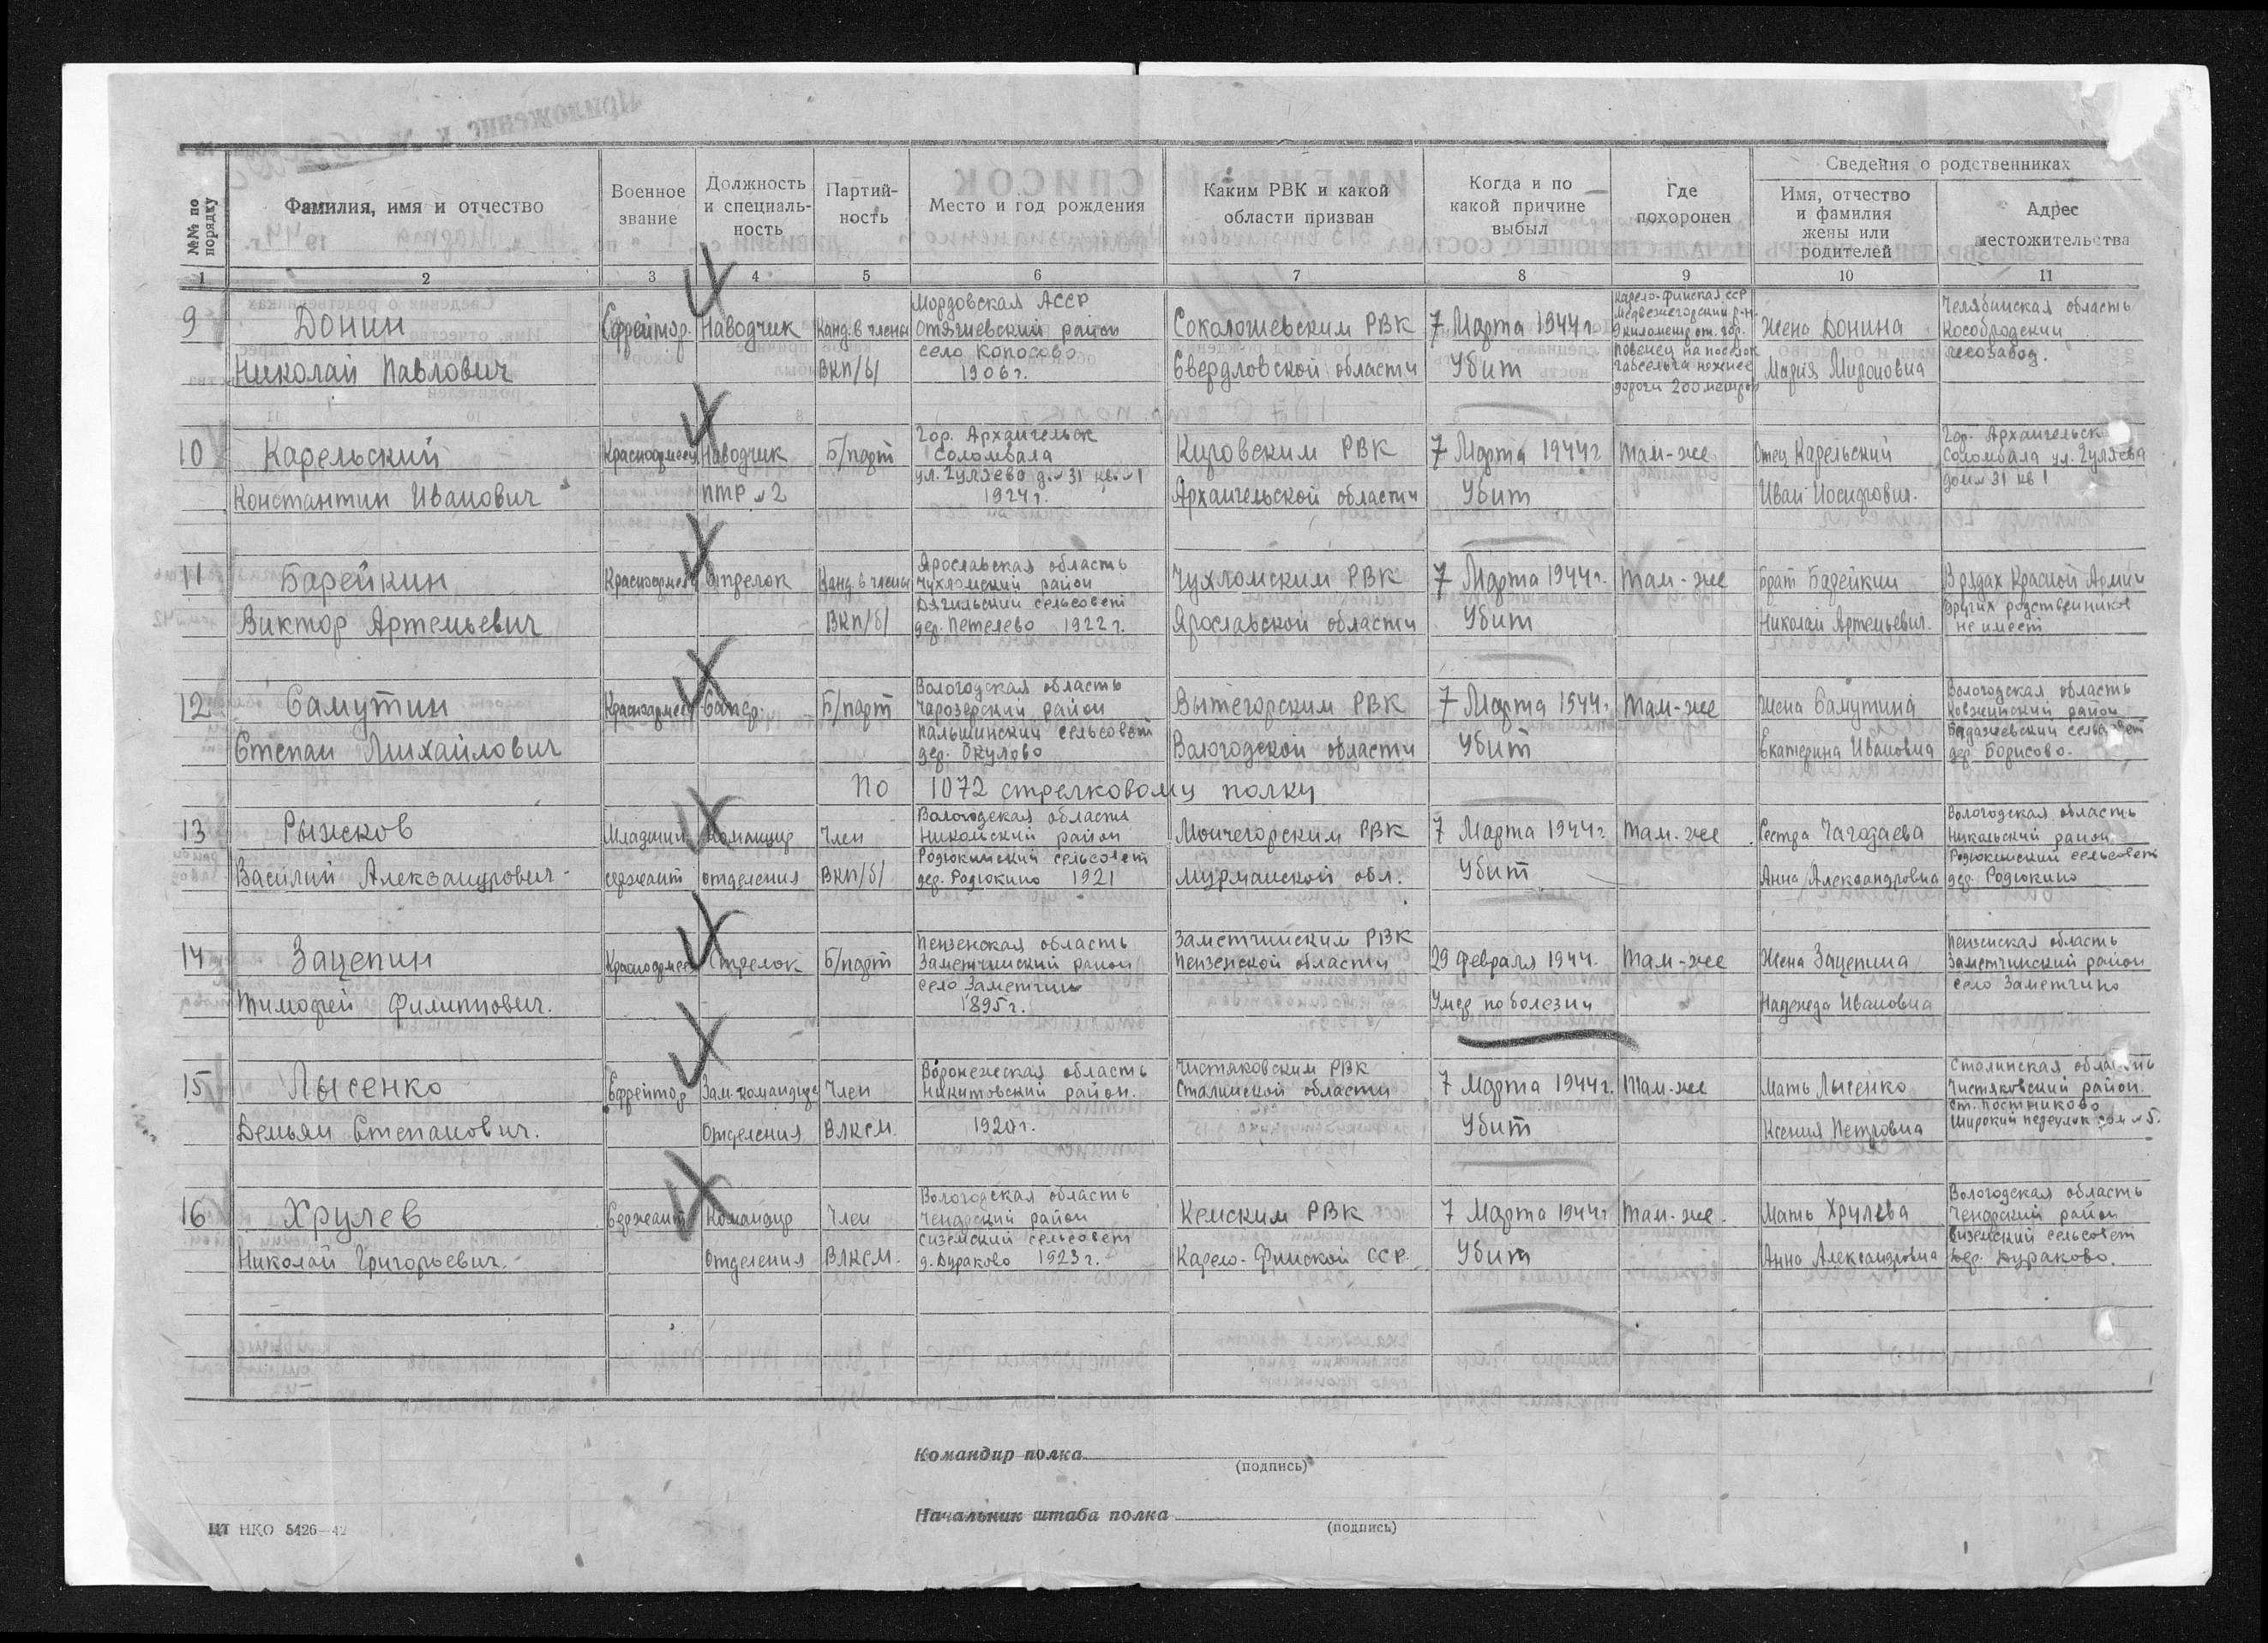 Сведения о родственниках
№№ по порядку
Фамилия, имя и отчество
Военное звание
Должность и специаль-ность
Партий-ность
Место и год рождения
Каким РВК и какой области призван
Когда и по какой причине выбыл
Где похоронен
Имя, отчество и фамилия жены или родителей
Адрес местожительства
1 2 3 4 5 6 7 8 9 10 11
9 Донин Ефрейтор Наводчик Канд. в члены
Николай Павлович ВКП/б/
Мордовская АССР
район
село
1906 г.
РВК
Свердловской области
7 Марта 1944 г
Убит
Карело-Финская ССР
Медвежегорский р-н
9 километр от гор.
Повенец на поселок
Габсельга
дороги 200 метров
Жена Донина
Мария Мироновна
Челябинская область
лесозавод.
10 Карельский Красноармеец Наводчик Б/парт
Константин Иванович ПТР №2
Гор. Архангельск
Соломбала
ул. Гуляево д. №31 кв. №1
1924 г.
РВК
Архангельской области
7 Марта 1944 г Там-же
Убит
Отец Карельский
Иван Иосифович.
Гор. Архангельск
Соломбала ул. Гуляева
дом № 31 кв 1
11 Барейкин Красноармеец Стрелок Канд. в члены
Виктор Артемьевич ВКП/б/
Ярославская область
Чухломский район
сельсовет
дер. Петелево 1922 г.
Чухломским РВК
Ярославской области
7 Марта 1944 г. Там-же
Убит
Брат Барейкин
Николай Артемьевич.
В рядах Красной Армии
других родственников
не имеет
12 Самутин Красноармеец Сапер. Б/парт
Степан Михайлович
Вологодская область
Чарозерский район
сельсовет
дер. Окулово
Вытегорским РВК
Вологодской области
7 Марта 1944 г. Там-же
Убит
Жена Самутина
Екатерина Ивановна
Вологодская область
Ковжинский район
сельсовет
дер. Борисово.
По 1072 стрелковому полку
13 Рыжков Младший Командир Член
Василий Александрович сержант отделения ВКП/б/
Вологодская область
Никольский район
Родюкинский сельсовет
дер. Родюкино 1921
Мончегорским РВК
Мурманской обл.
7 Марта 1944 г. Там-же
Убит
Сестра
Анна Александровна
Вологодская область
Никольский район
Родюкинский сельсовет
дер. Родюкино
14 Зацепин Красноармеец Стрелок Б/парт
Тимофей Филиппович.
Пензенская область
Заметчинский район
село Заметчино
1895 г.
Заметчинским РВК
Пензенской области
29 февраля 1944. Там-же
Умер по болезни
Жена Зацепина
Надежда Ивановна
Пензенская область
Заметчинский район
село Заметчино
15 Лысенко Ефрейтор Зам. командира Член
Демьян Степанович. Отделения ВЛКСМ.
Воронежская область
Никитовский район.
1920 г.
Чистяковским РВК
Сталинской области
7 Марта 1944 г. Там-же
Убит
Мать Лысенко
Ксения Петровна
Сталинская область
Чистяковский район.
ст. Постниково
Широкий переулок дом №5.
16 Хрулев Сержант Командир Член
Николай Григорьевич. Отделения ВЛКСМ.
Вологодская область
район
Сиземский сельсовет
д. Дураково 1923 г.
Кемским РВК
Карело-Финской ССР.
7 Марта 1944 г Там-же.
Убит
Мать Хрулева
Анна Александровна
Вологодская область
район
Сиземский сельсовет
дер. Дураково.
Командир полка
(подпись)
Начальник штаба полка
(подпись)
ЦТ НКО 5426—42